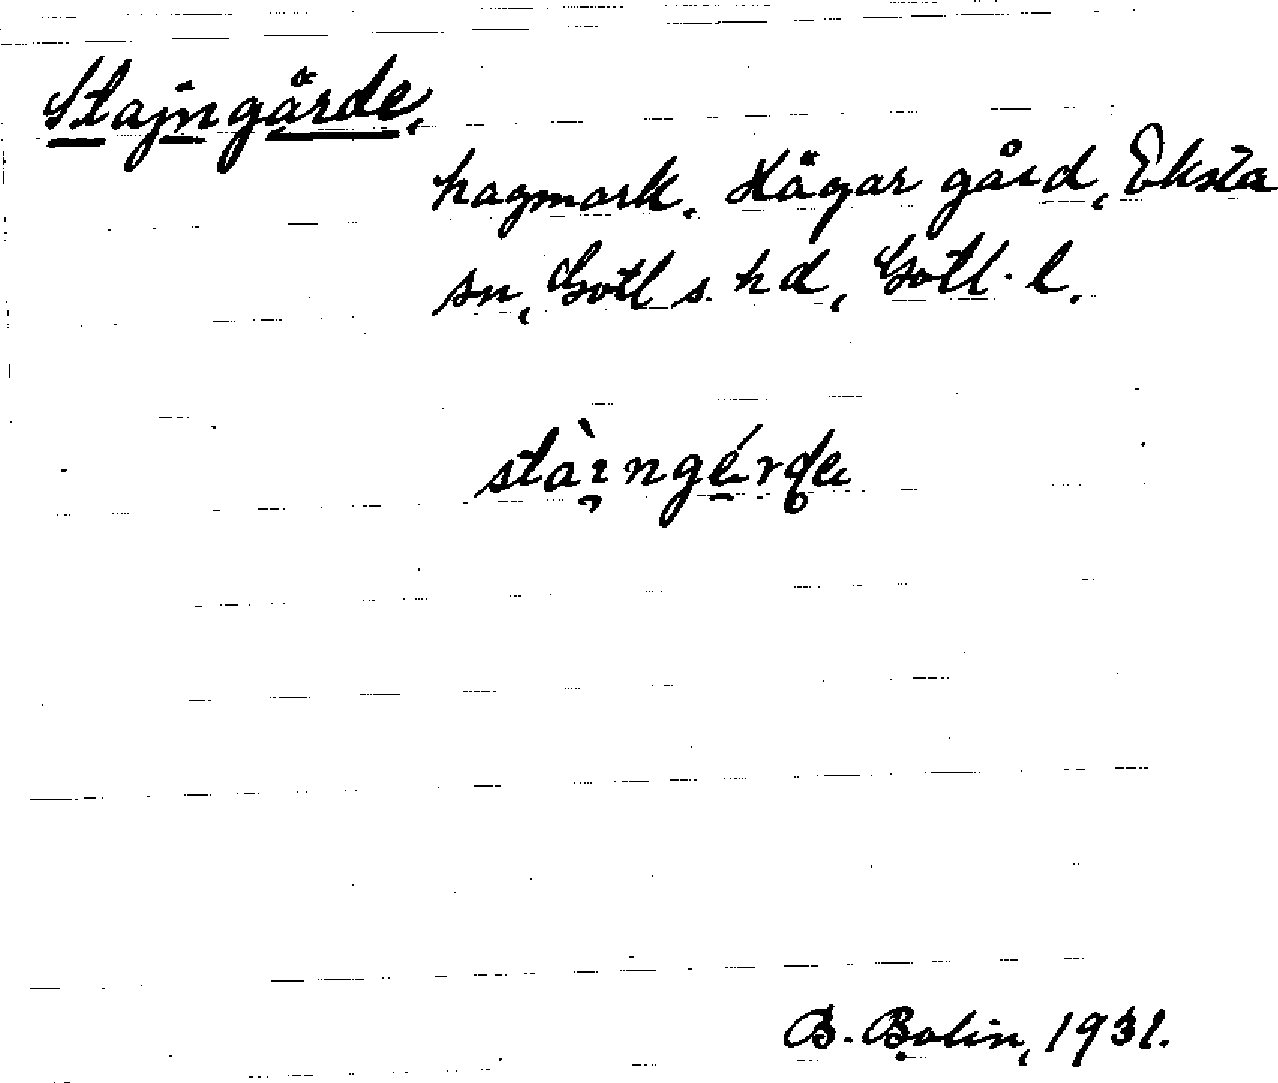 Stajngärde,
hagmark. Hägar gård, Eksta
sn, Gotl s. hd, Gotl. l.
stàingérde
B. Bolin, 1931.